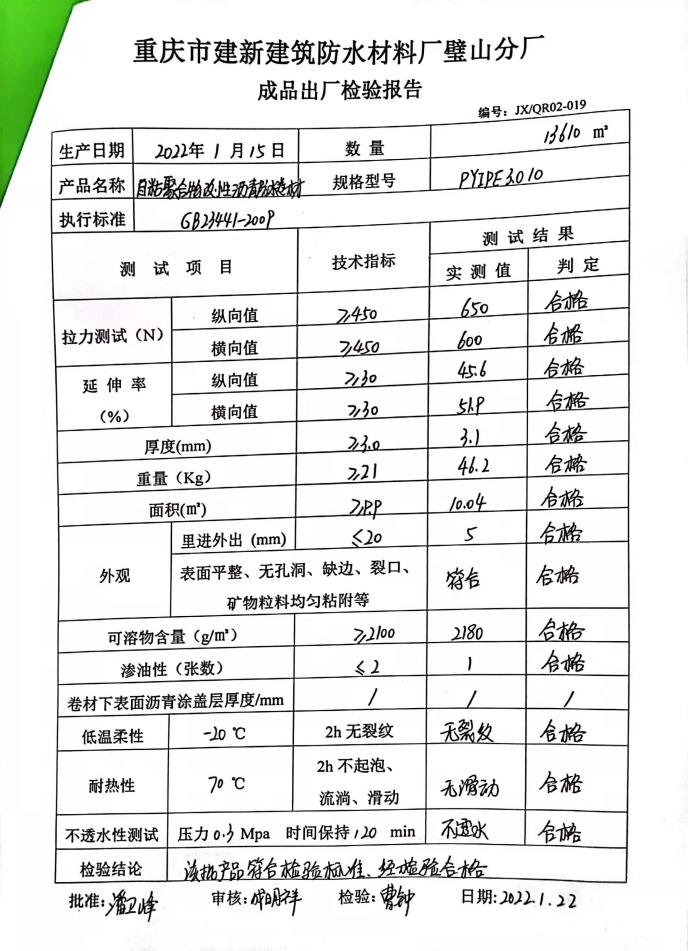 重庆市建新建筑防水材料厂璧山分厂
成品出厂检验报告
编号：JX/QR02-019
生产日期 2022年1月15日 数量 13610 m²
产品名称 自粘聚合物改性沥青防水卷材 规格型号 PYIPE3.0 10
执行标准 GB23441-2009
测试项目 技术指标 测试结果
实测值 判定
拉力测试（N） 纵向值 ≥450 650 合格
横向值 ≥450 600 合格
延伸率（%） 纵向值 ≥30 45.6 合格
横向值 ≥30 51.9 合格
厚度(mm) ≥3.0 3.1 合格
重量（Kg） ≥21 46.2 合格
面积(m²) ≥9.9 10.04 合格
外观 里进外出 (mm) ≤20 5 合格
表面平整、无孔洞、缺边、裂口、
矿物粒料均匀粘附等 符合 合格
可溶物含量（g/m²） ≥2100 2180 合格
渗油性（张数） ≤2 1 合格
卷材下表面沥青涂盖层厚度/mm / / /
低温柔性 -20 ℃ 2h 无裂纹 无裂纹 合格
耐热性 70 ℃ 2h 不起泡、
流淌、滑动 无滑动 合格
不透水性测试 压力 0.3 Mpa 时间保持 120 min 不透水 合格
检验结论 该批产品符合检验标准、经检验合格
批准：潘卫峰 审核：成明祥 检验：曹钟 日期：2022.1.22